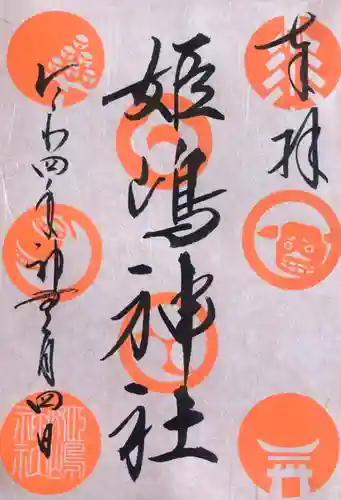 奉拝
姫嶋神社
令和四年神無月四日
姫嶋神社